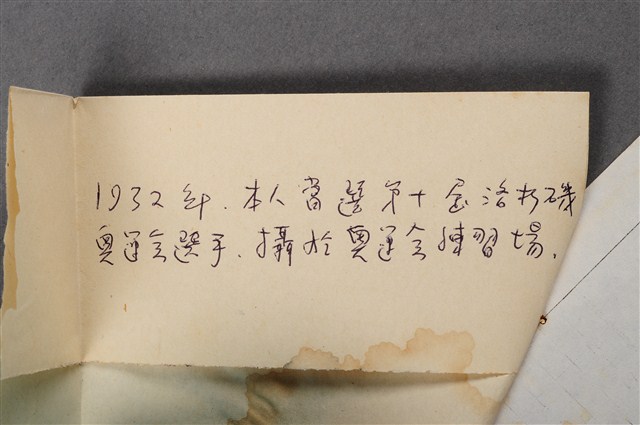 1932年.本人當選第十屆洛杉磯
奧運会選手.攝於奧運会練習場.